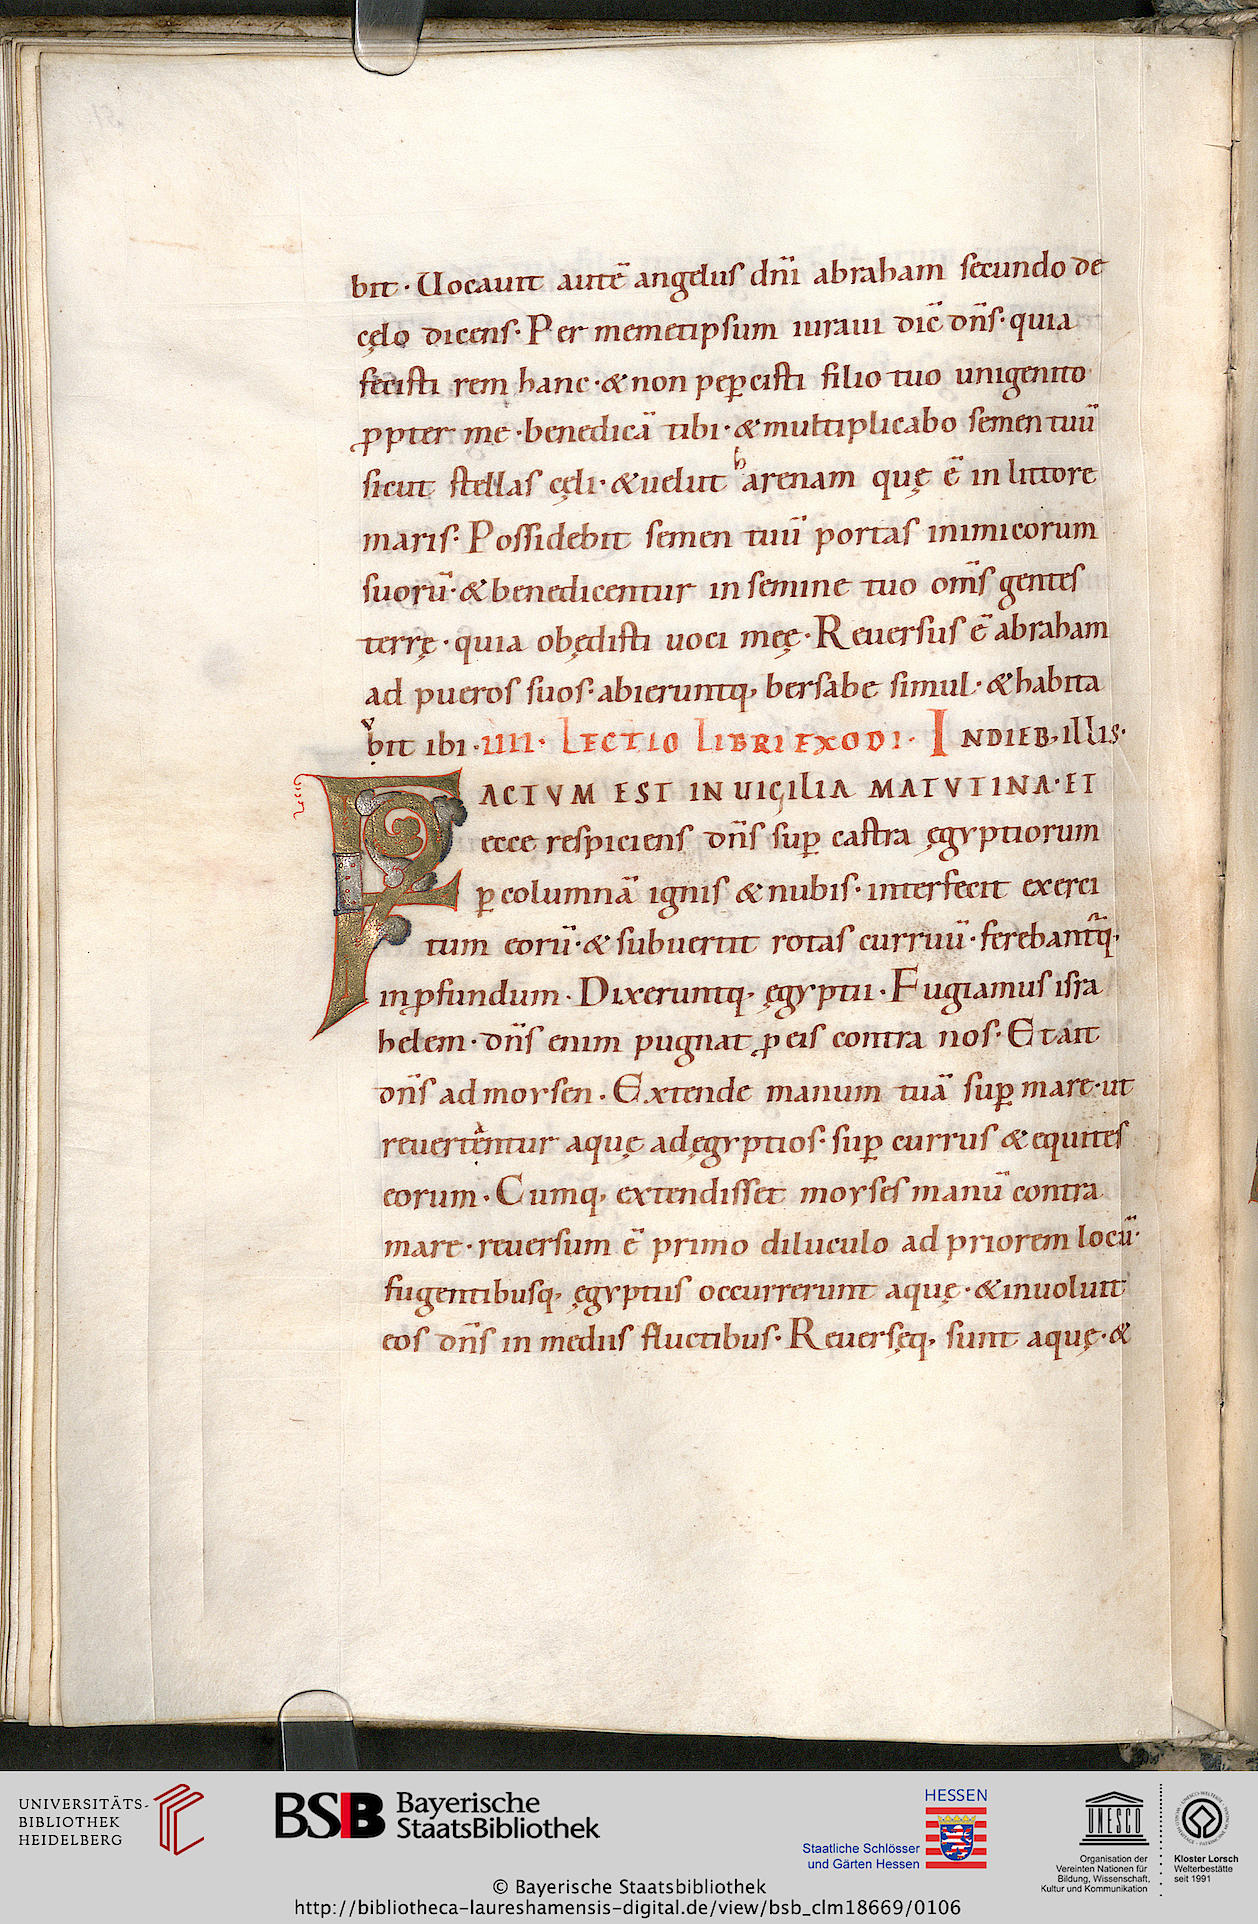 bit · Uocauit autē angelus dn̄i abraham secundo de
cęlo dicens · Per memetipsum iuraui dic̄ dn̄s · quia
fecisti rem hanc · & non peꝑcisti filio tuo unigenito
ꝓpter me · benedicā tibi · & multiplicabo semen tuū
sicut stellas cęli · & uelut harenam quę ē in littore
maris · Possidebit semen tuū portas inimicorum
suorū · & benedicentur in semine tuo om̄s gentes
terrę · quia obędisti uoci meę · Reuersus ē abraham
ad pueros suos · abieruntq; bersabe simul · & habita
bit ibi · IIII · LECTIO LIBRI EXODI · INDIEB; illis ·
FACTVM EST IN UIGILIA MATVTINA · ET
ecce respiciens dn̄s suꝑ castra ęgyptiorum
ꝑ columnā ignis & nubis · interfecit exerci
tum eorū · & subuertit rotas curruū · ferebant᷑q;
in ꝓfundum · Dixeruntq; ęgyptii · Fugiamus isra
helem · dn̄s enim pugnat ꝓ eis contra nos · Et ait
dn̄s ad moysen · Extende manum tuā suꝑ mare · ut
reuertentur aquę ad ęgyptios · suꝑ currus & equites
eorum · Cumq; extendisset moyses manū contra
mare · reuersum ē primo diluculo ad priorem locū ·
fugentibusq; ęgyptiis occurrerunt aquę · & inuoluit
eos dn̄s in mediis fluctibus · Reuersęq; sunt aquę · &
UNIVERSITÄTS-
BIBLIOTHEK
HEIDELBERG
BSB Bayerische
StaatsBibliothek
HESSEN
Staatliche Schlösser
und Gärten Hessen
UNESCO
Organisation der
Vereinten Nationen für
Bildung, Wissenschaft,
Kultur und Kommunikation
Kloster Lorsch
Welterbestätte
seit 1991
© Bayerische Staatsbibliothek
http://bibliotheca-laureshamensis-digital.de/view/bsb_clm18669/0106